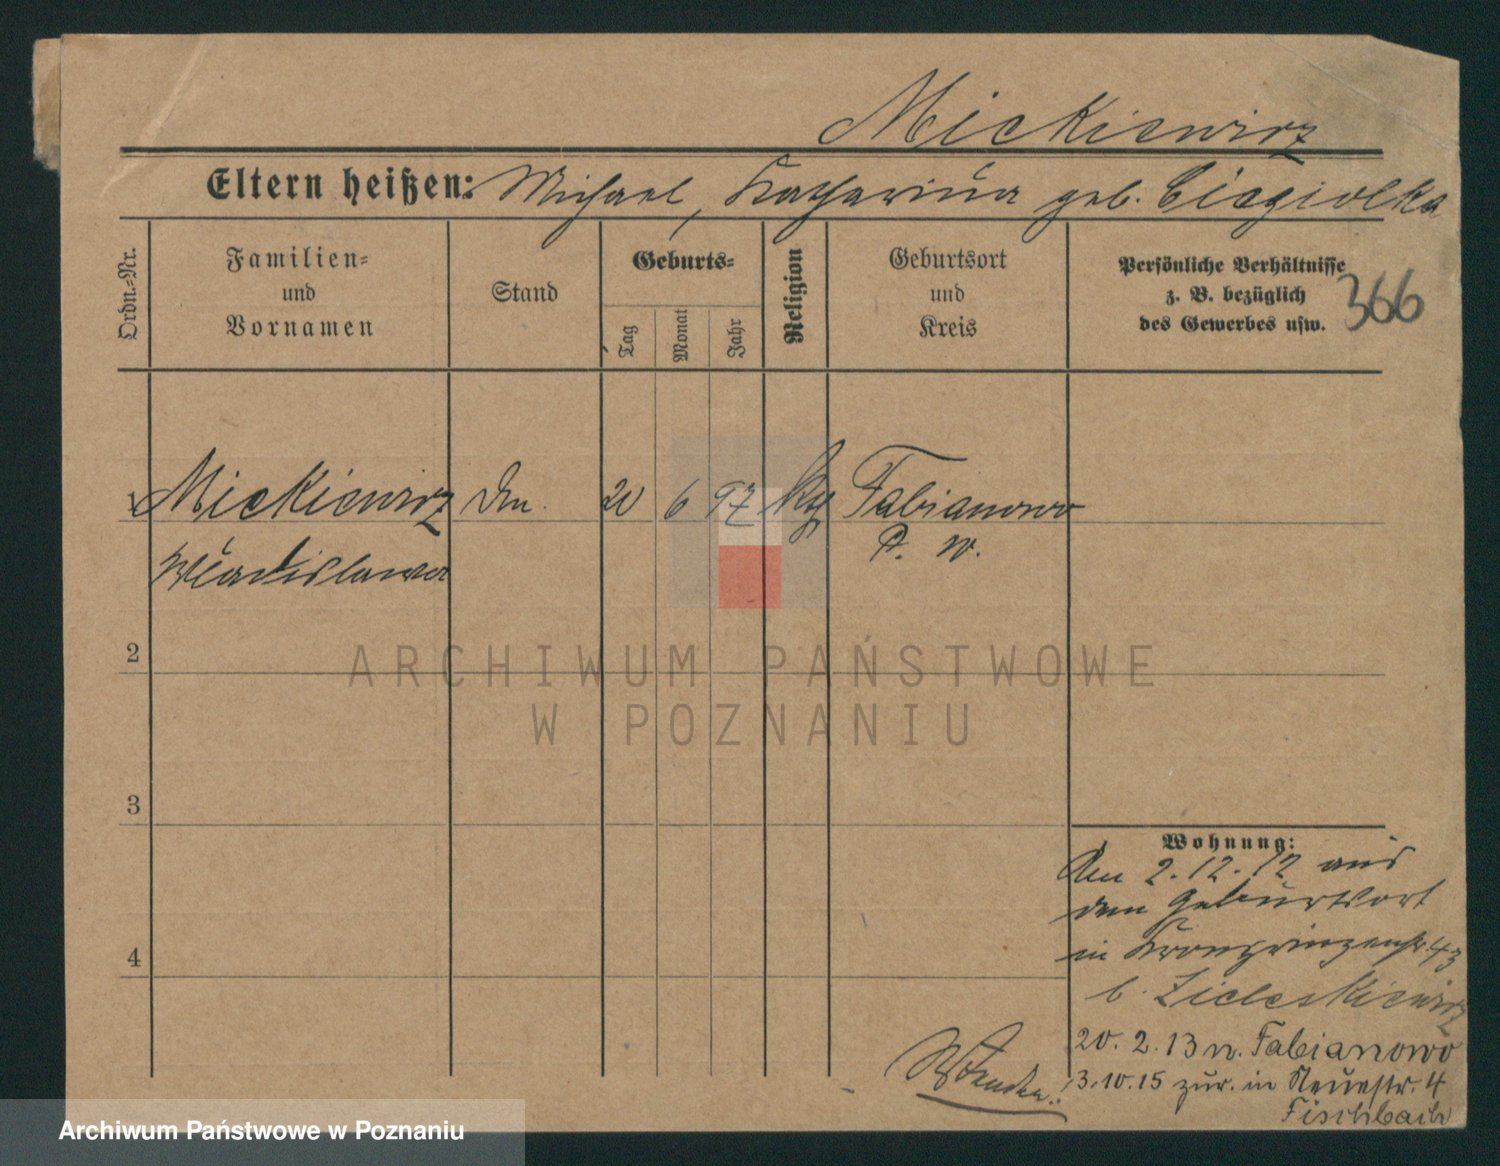 Mickiewicz
Eltern heißen: Michael, Katharina geb. Ciegiolka
Ordn.-Nr.
Familien-
und
Vornamen
Stand
Geburts-
Tag
Monat
Jahr
Religion
Geburtsort
und
Kreis
Persönliche Verhältnisse
z. B. bezüglich
des Gewerbes usw.
366
1 Mickiewicz 20 6 97 Fabianowo
Wladislawa P. W.
2
ARCHIWUM PAŃSTWOWE
W POZNANIU
3
4
Wohnung:
Am 2.12.12 aus
dem Geburtsort
in Kronprinzenstr. 43
b. Zieleskiewicz
20. 2. 13 n. Fabianowo
3.10.15 zur. in Neuestr. 4
Fischbach
Archiwum Państwowe w Poznaniu